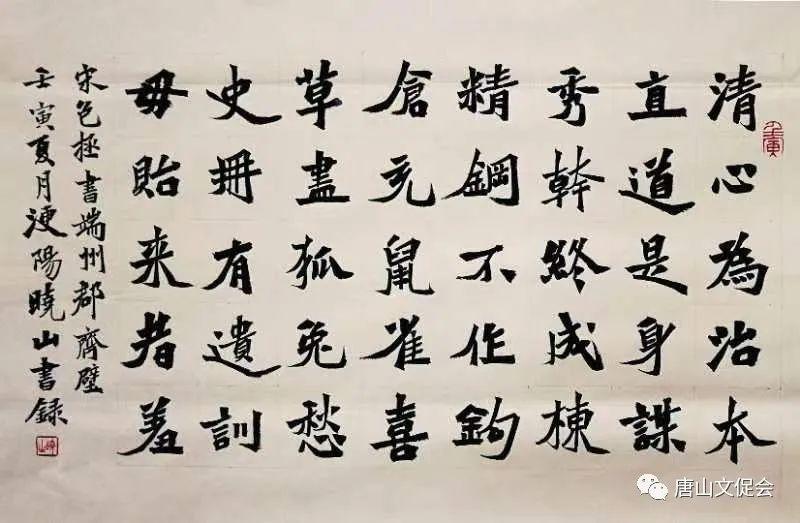 清心為治本
直道是身謀
秀幹終成棟
精鋼不作鉤
倉充鼠雀喜
草盡狐兔愁
史冊有遺訓
毋貽来者羞
宋包拯書端州郡齊壁
壬寅夏月浭陽曉山書録
壬寅
唐山文促会